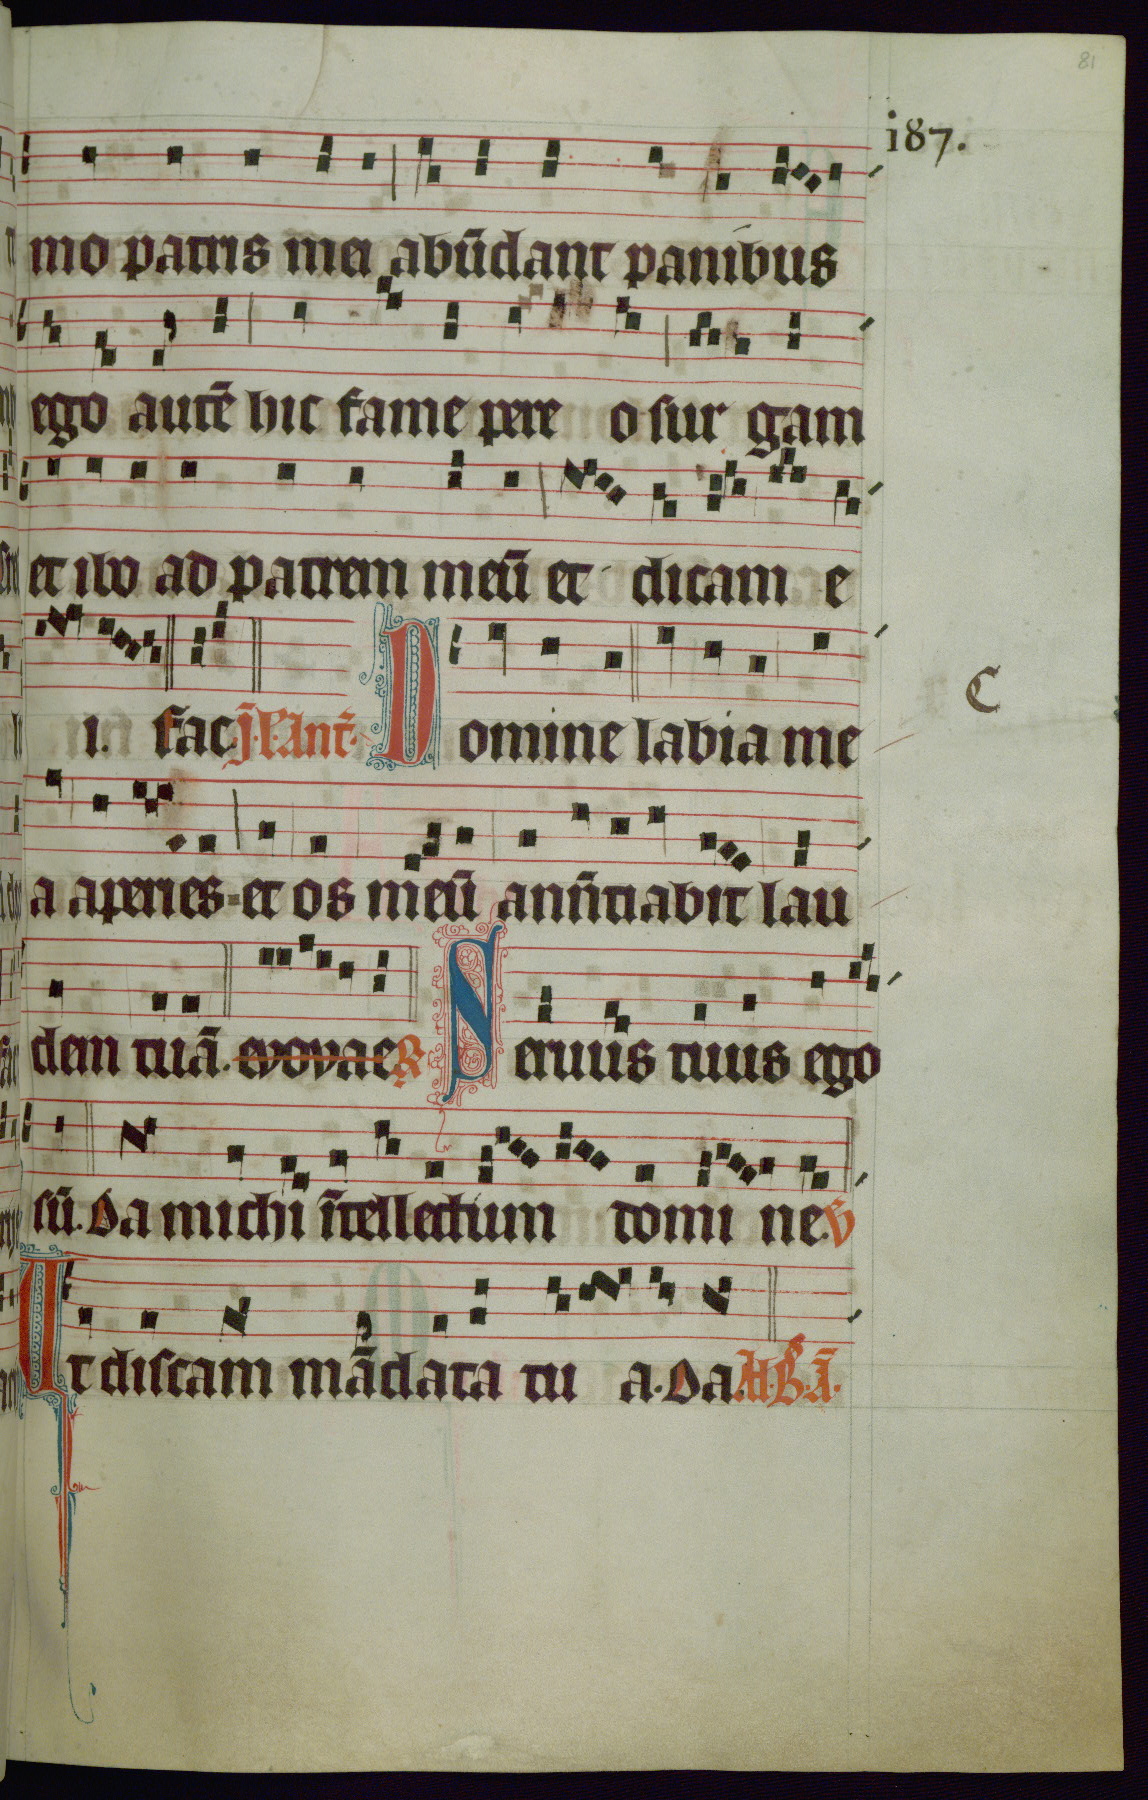 81
187.
mo patris mei abūdant panibus
ego autē hic fame pere o sur gam
et ibo ad patrem meū et dicam e
i. fac J. L. Ant. Domine labia me
C
a aperies et os meū anūtiabit lau
dem tuā. evovae R Seruus tuus ego
sū. Da michi ītellectum domi ne. V
Ut discam mādata tu a. Da. Ad. B. A.